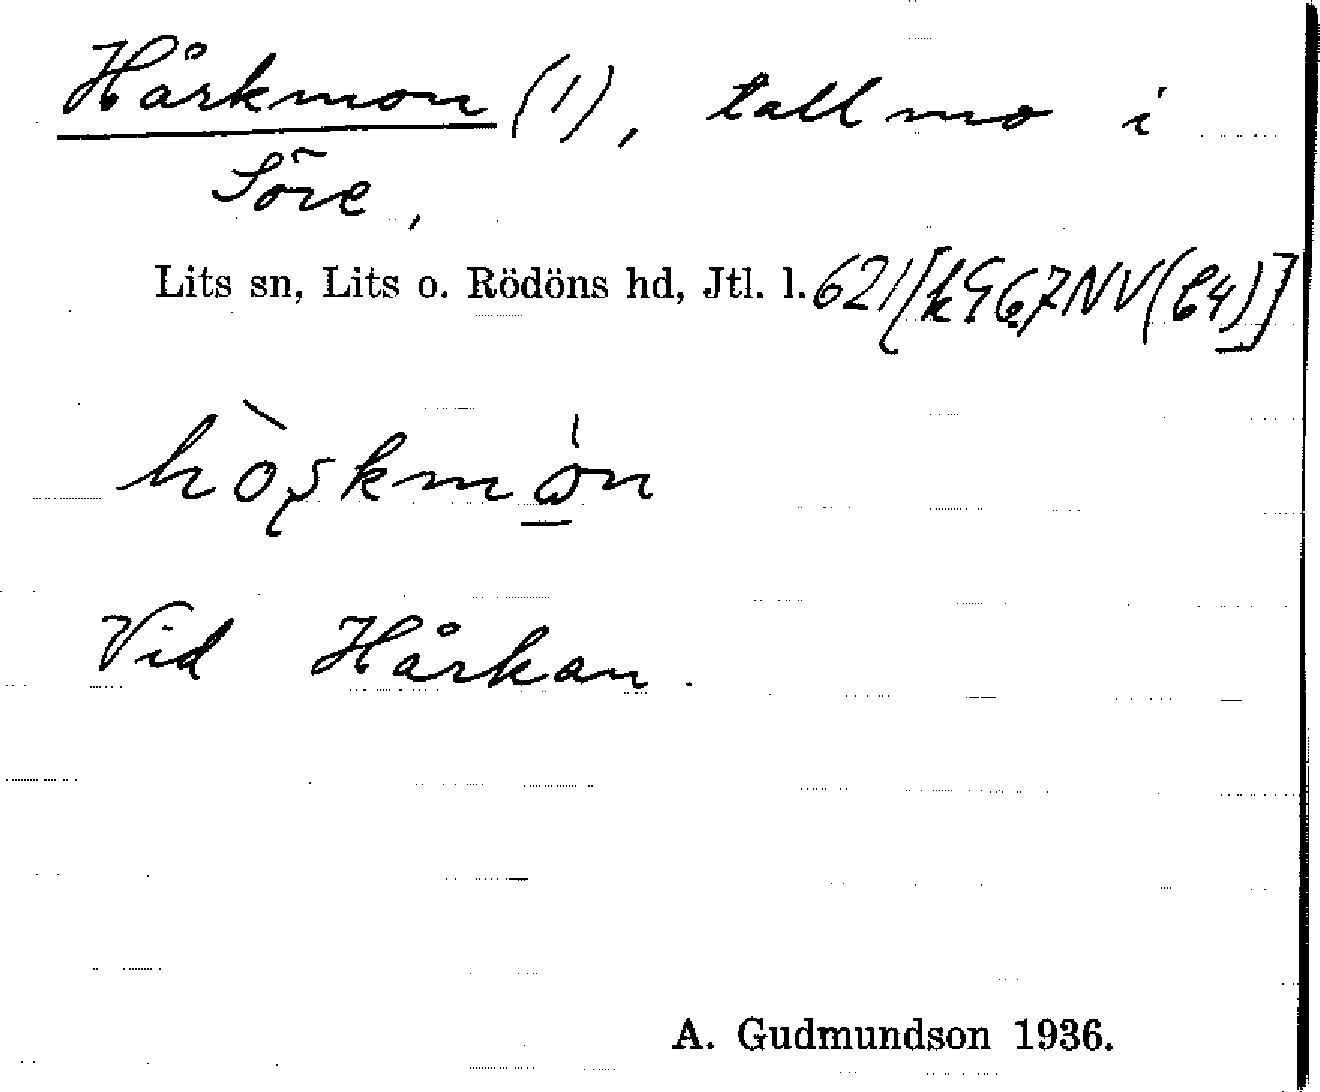 Hårkmon (1), tallmo i
Söre,
Lits sn, Lits o. Rödöns hd, Jtl. l. 621 [k967NV(b4)]
Vid Hårkan.
A. Gudmundson 1936.